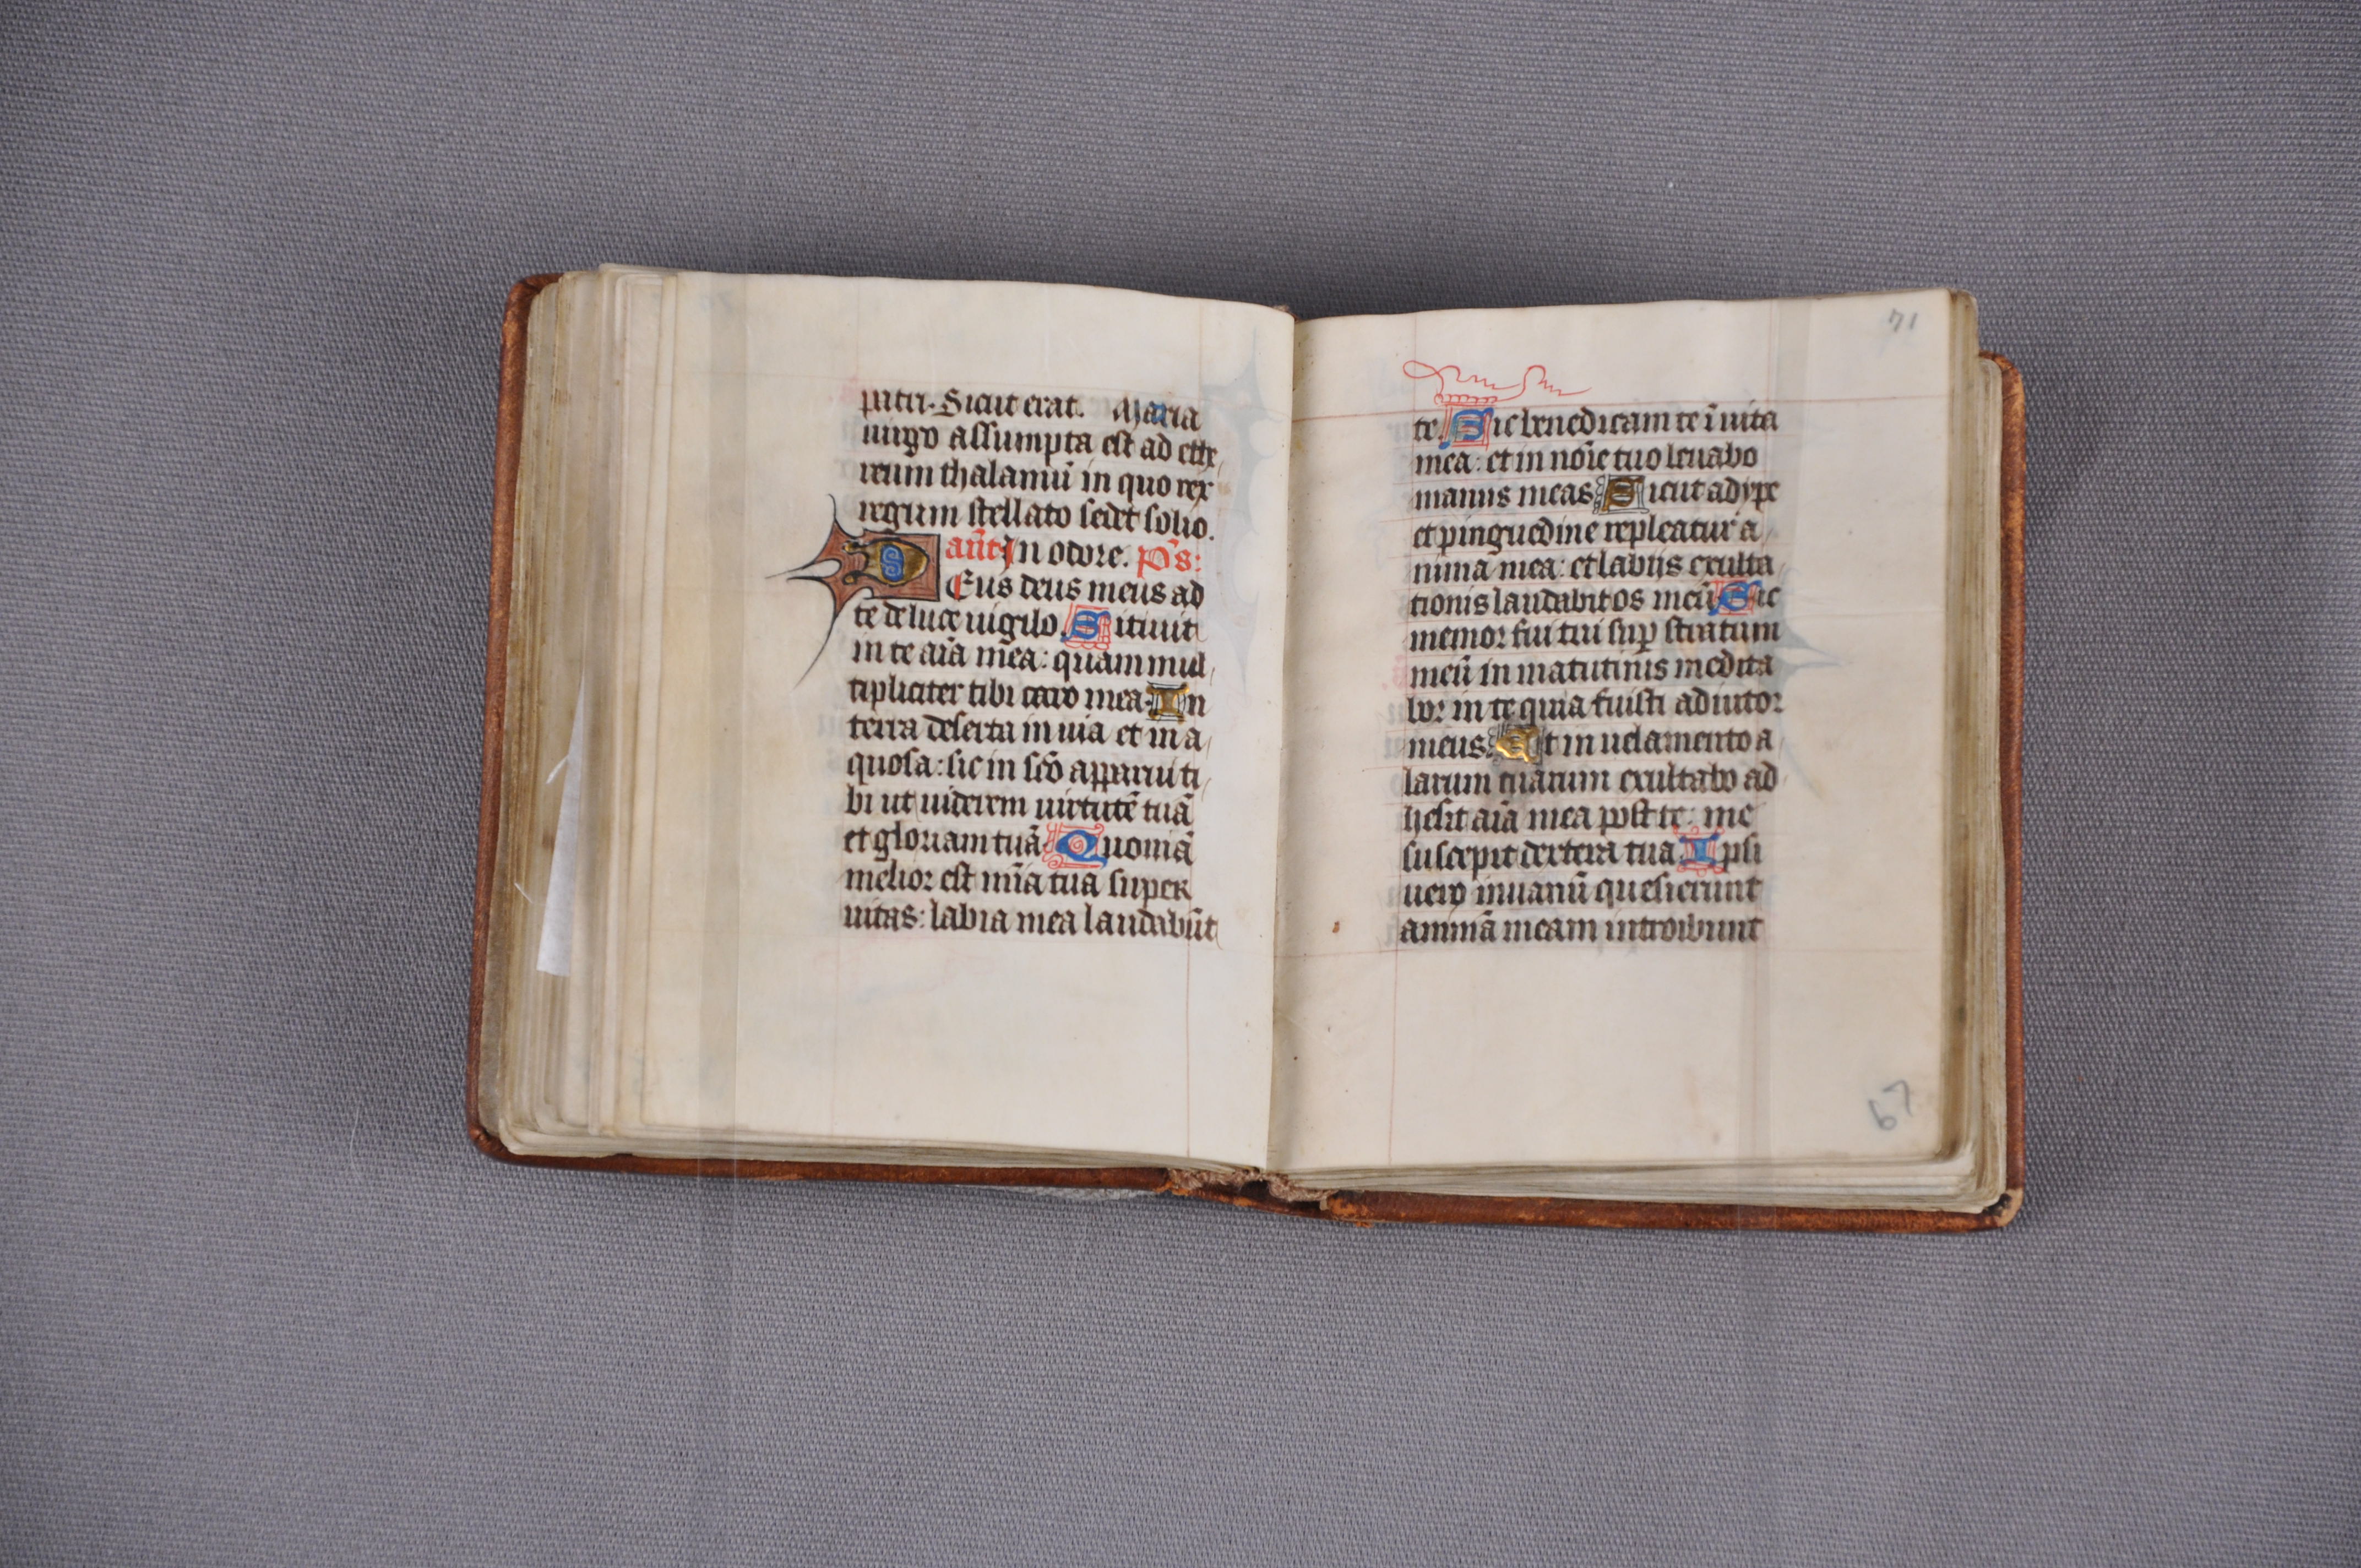 patri. Sicut erat. Maria
uirgo assumpta est ad ethe
reum thalamū in quo rex
regum stellato sedet solio.
an̄t In odore. p̄s:
Deus deus meus ad
te de luce uigilo. Sitiuit
in te aīa mea: quam mul
tipliciter tibi caro mea. In
terra deserta in uia et in a
quosa: sic in sc̄o apparui ti
bi ut uiderem uirtutē tuā
et gloriam tuā. Quoniā
melior est mīa tua super
uitas: labia mea laudabūt
71
te. Sic benedicam te ī uita
mea: et in noīe tuo leuabo
manus meas. Sicut adype
et pinguedine repleatur a
nima mea: et labijs exulta
tionis laudabit os meū. Sic
memor fui tui sup stratum
meū in matutinis medita
bor in te quia fuisti adiutor
meus. Et in uelamento a
larum tuarum exultabo ad
hesit aīa mea post te: me
suscepit dextera tua. Ipsi
uero inuanū quesierunt
animā meam introibunt
67